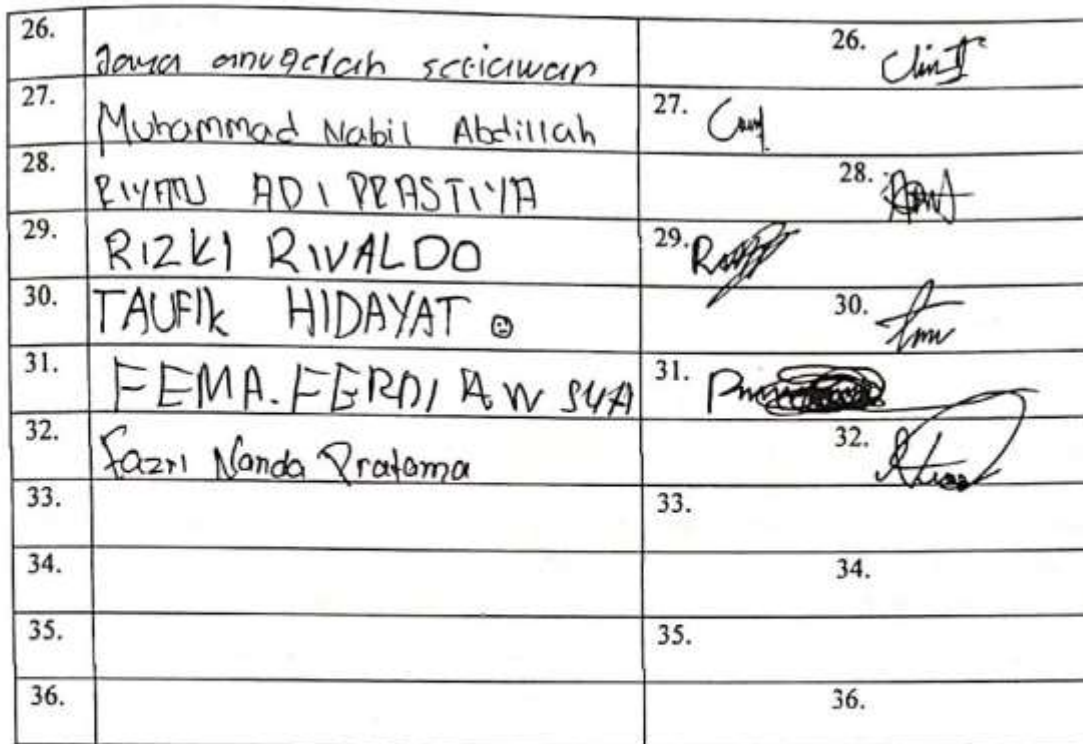 26. Jaya anugerah setiawan 26.
27. Muhammad Nabil Abdillah 27.
28. RIYAN ADI PRASTIYA 28.
29. RIZKI RIVALDO 29.
30. TAUFIK HIDAYAT 30.
31. FEMA. FERDI AN SYA 31.
32. Fazri Nanda Pratama 32.
33. 33.
34. 34.
35. 35.
36. 36.